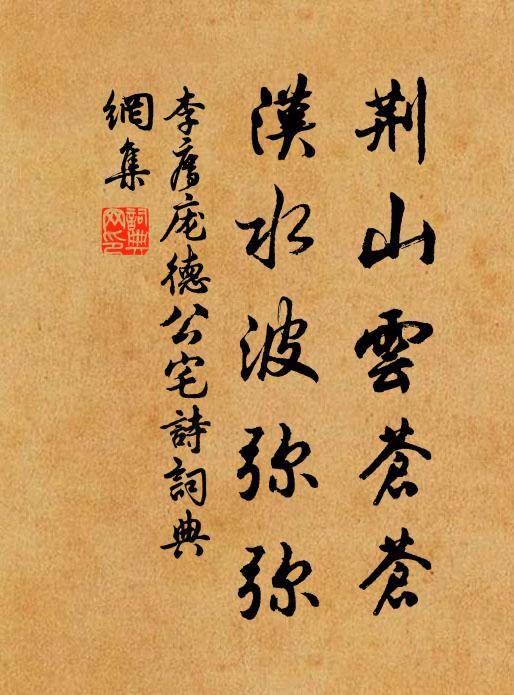 荆山雲蒼蒼
漢水波弥弥
李廌庞德公宅詩詞典
網集
詞典網印